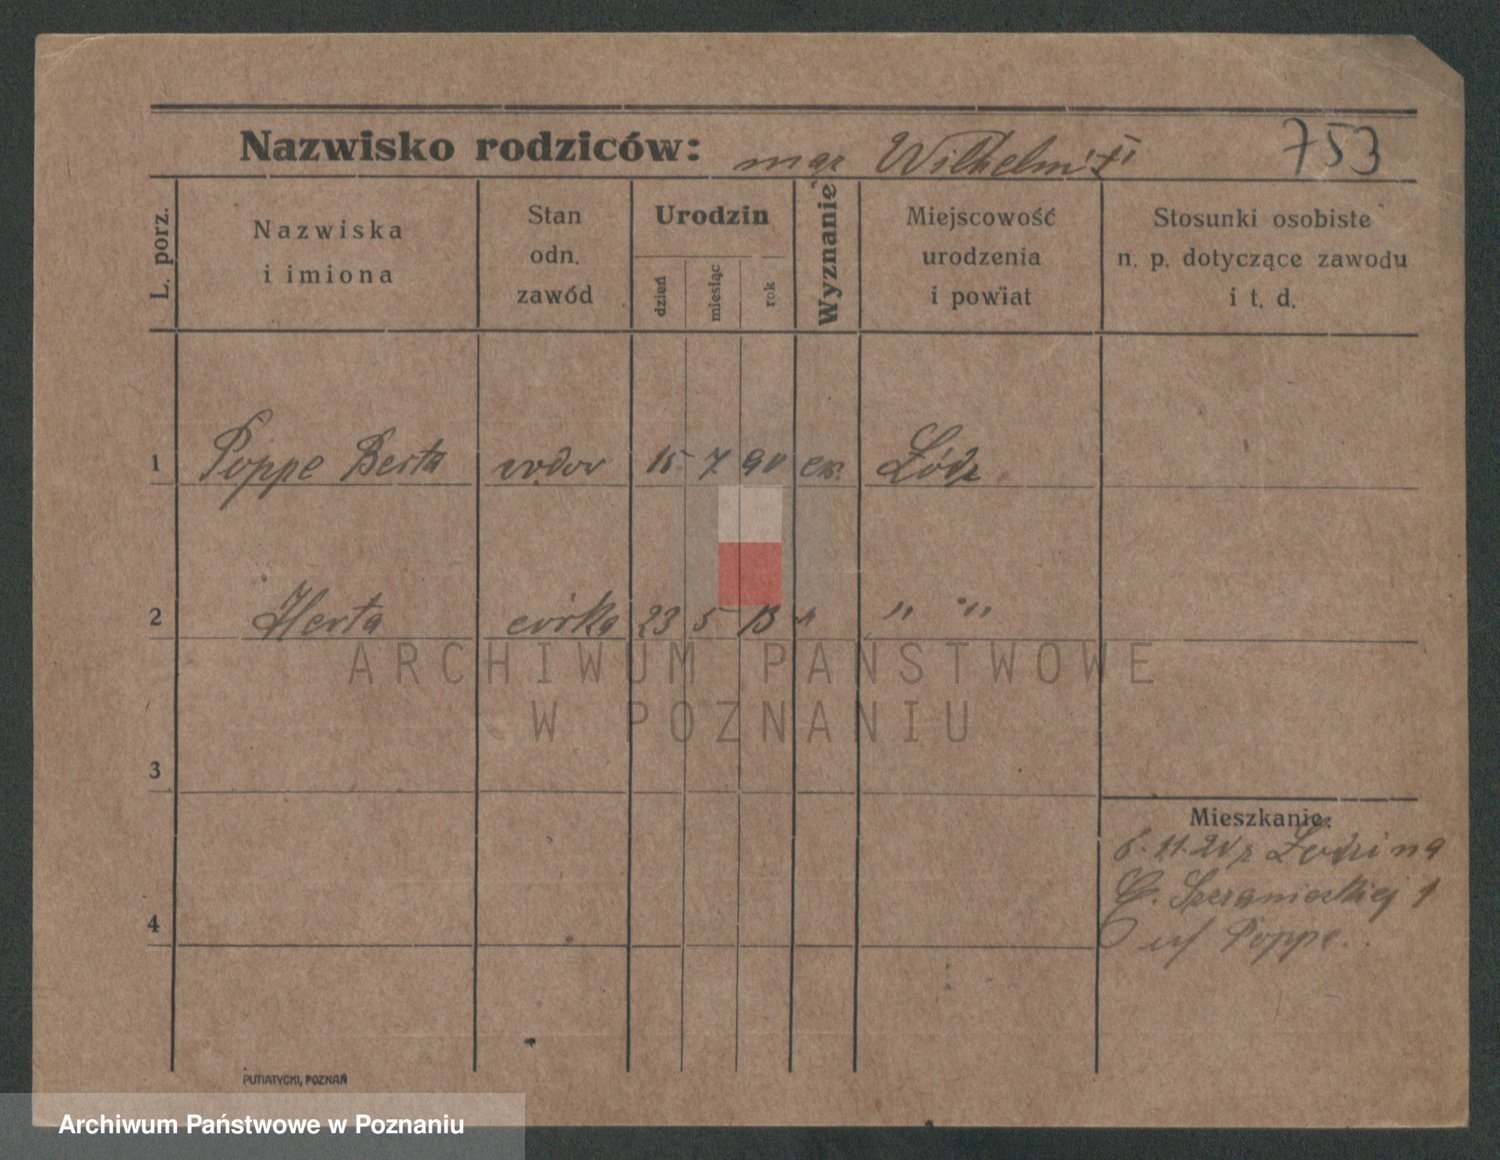 Nazwisko rodziców: mgr Wilhelm † 753
L. porz.
Nazwiska
i imiona
Stan
odn.
zawód
Urodzin
dzień
miesiąc
rok
Wyznanie
Miejscowość
urodzenia
i powiat
Stosunki osobiste
n. p. dotyczące zawodu
i t. d.
1 Poppe Berta wdow 15 7 90 ew. Łódź
2 Herta córka 23 5 13 " " "
ARCHIWUM PAŃSTWOWE
W POZNANIU
3
Mieszkanie:
6.11.20 z Łodzi na
4
Poppe.
PUTIATYCKI, POZNAŃ
Archiwum Państwowe w Poznaniu